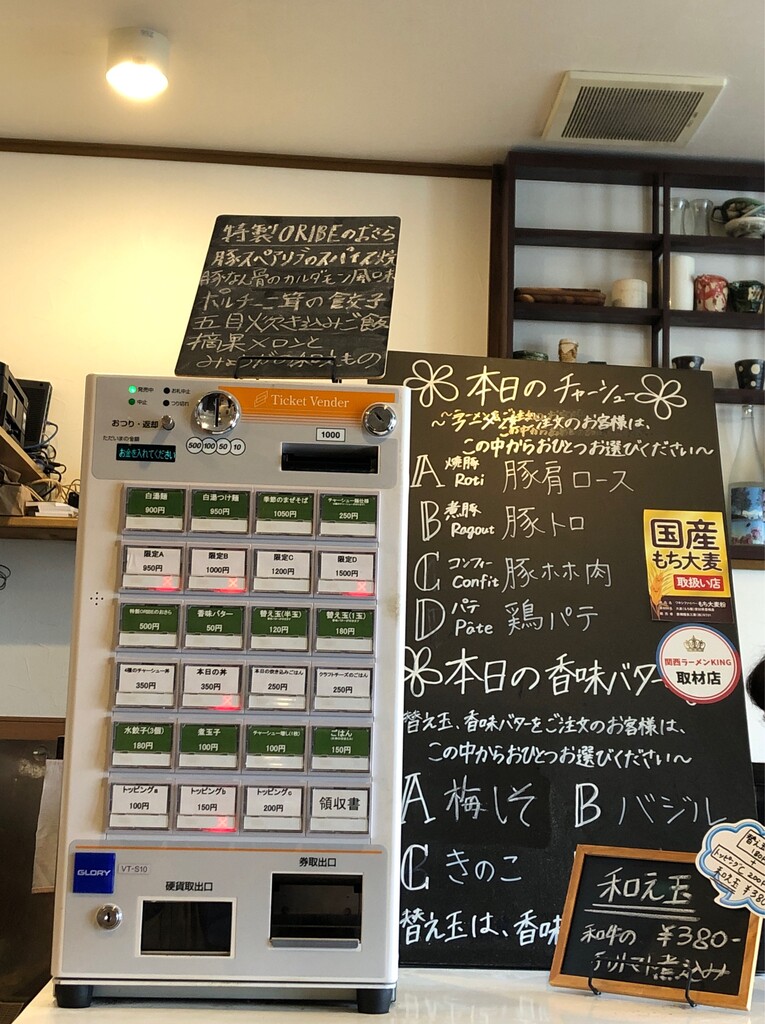 特製ORIBEのおさら
豚スペアリブのスパイス焼
豚なん骨のカルダモン風味
ポルチーニ茸の餃子
五目炊き込みご飯
摘果メロンと
みょうがの
もの
Ticket Vender
発売中
お札中止
中止
つり切れ
おつり・返却
ただいまの金額
お金を入れてください
500 100 50 10
1000
白湯麺 900円
白湯つけ麺 950円
季節のまぜそば 1050円
チャーシュー麺仕様 250円
限定A 950円
限定B 1000円
限定C 1200円
限定D 1500円
特製ORIBEのおさら 500円
香味バター 50円
替え玉(半玉) 120円
替え玉(1玉) 180円
4種のチャーシュー丼 350円
本日の丼 350円
本日の炊き込みごはん 250円
クラフトチーズのごはん 250円
水餃子(3個) 180円
煮玉子 100円
チャーシュー増し(1枚) 100円
ごはん 150円
トッピングa 100円
トッピングb 150円
トッピングc 200円
領収書
GLORY
VT-S10
硬貨取出口
券取出口
本日のチャーシュー
〜ラーメンをご注文のお客様は、
この中からおひとつお選びください〜
A 焼豚 Roti 豚肩ロース
B 煮豚 Ragout 豚トロ
C コンフィー Confit 豚ホホ肉
D パテ Pâte 鶏パテ
本日の香味バタ
替え玉、香味バターをご注文のお客様は、
この中からおひとつお選びください〜
A 梅しそ B バジル
C きのこ
替え玉は、香味
国産
もち大麦
取扱い店
関西ラーメンKING
取材店
和え玉
和牛の ¥380-
煮込み
替え玉
トッピング 200円